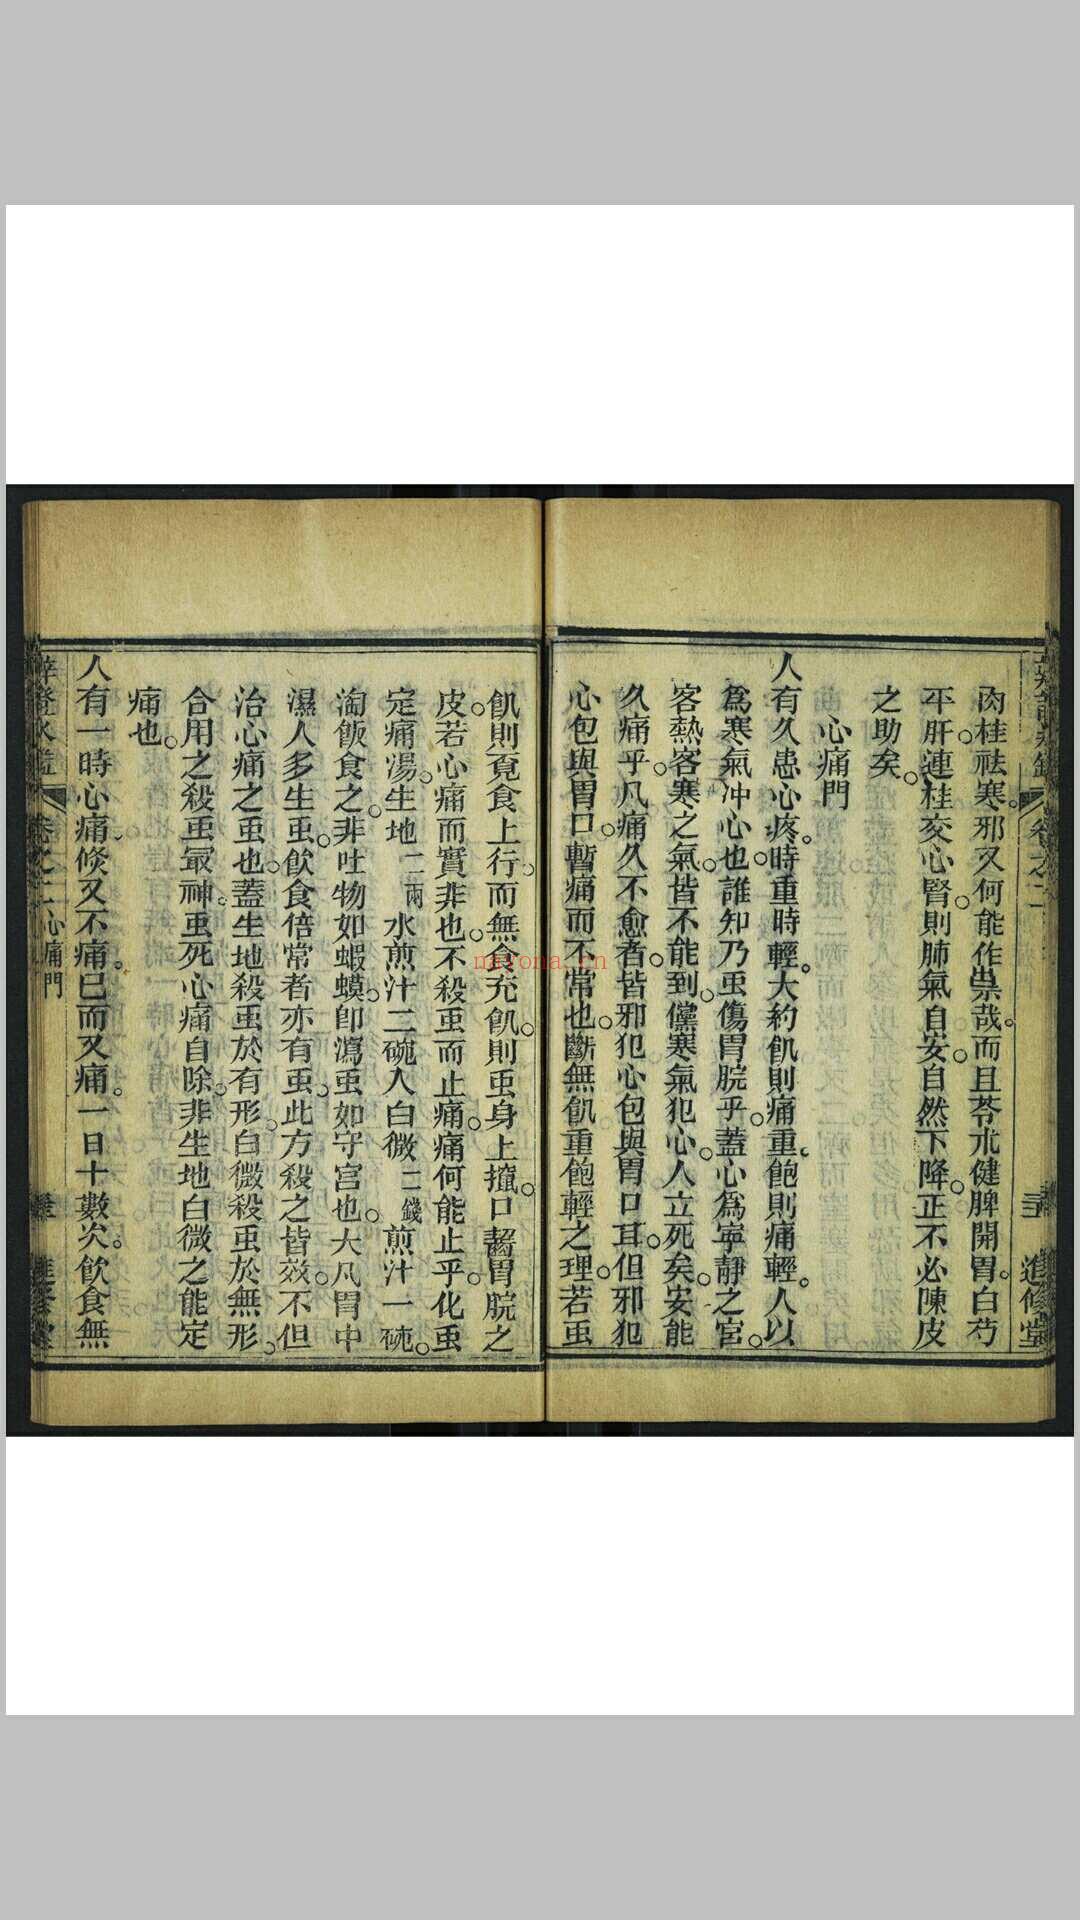 肉桂祛寒邪又何能作祟哉而且苓朮健脾開胃白芍
平肝連桂交心腎則肺氣自安自然下降正不必陳皮
之助矣
心痛門
人有久患心疼時重時輕大約飢則痛重飽則痛輕人以
為寒氣冲心也誰知乃虫傷胃脘乎蓋心為寧靜之宮
客熱客寒之氣皆不能到儻寒氣犯心人立死矣安能
久痛乎凡痛久不愈者皆邪犯心包與胃口耳但邪犯
心包與胃口暫痛而不常也斷無飢重飽輕之理若虫
飢則覓食上行而無食充飢則虫身上攛口齧胃脘之
皮若心痛而實非也不殺虫而止痛痛何能止乎化虫
定痛湯生地二兩水煎汁二碗入白微二錢煎汁一碗
淘飯食之非吐物如蝦蟆卽瀉虫如守宮也大凡胃中
濕人多生虫飲食倍常者亦有虫此方殺之皆效不但
治心痛之虫也蓋生地殺虫於有形白微殺虫於無形
合用之殺虫最神虫死心痛自除非生地白微之能定
痛也
人有一時心痛倏又不痛已而又痛一日十數次飲食無
卷之二心痛門
進修堂
nayona.cn